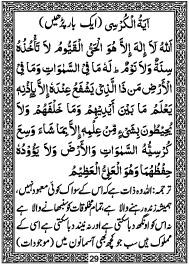 آيَةُ الْكُرْسِى (ایک بار پڑھیں)
اَللّٰهُ لَآ اِلٰهَ اِلَّا هُوَ الْحَىُّ الْقَيُّوْمُ لَا تَاْخُذُهٗ
سِنَةٌ وَّلَا نَوْمٌ ط لَهٗ مَا فِى السَّمٰوٰتِ وَمَا فِى
الْاَرْضِ مَنْ ذَا الَّذِىْ يَشْفَعُ عِنْدَهٗ اِلَّا بِاِذْنِهٖ
يَعْلَمُ مَا بَيْنَ اَيْدِيْهِمْ وَمَا خَلْفَهُمْ وَلَا
يُحِيْطُوْنَ بِشَىْءٍ مِّنْ عِلْمِهٖ اِلَّا بِمَا شَآءَ وَسِعَ
كُرْسِيُّهُ السَّمٰوٰتِ وَالْاَرْضَ وَلَا يَؤُدُهٗ
حِفْظُهُمَا وَهُوَ الْعَلِىُّ الْعَظِيْمُ
ترجمہ: اللہ وہ ذات ہے کہ اس کے سوا کوئی معبود نہیں،
ہمیشہ زندہ رہنے والا ہے تمام مخلوقات کو سنبھالنے والا ہے
نہ اس کو اونگھ دبا سکتی ہے اور نہ نیند دبا سکتی ہے اسی کے
مملوک ہیں سب جو کچھ بھی آسمانوں میں (موجودات)
29